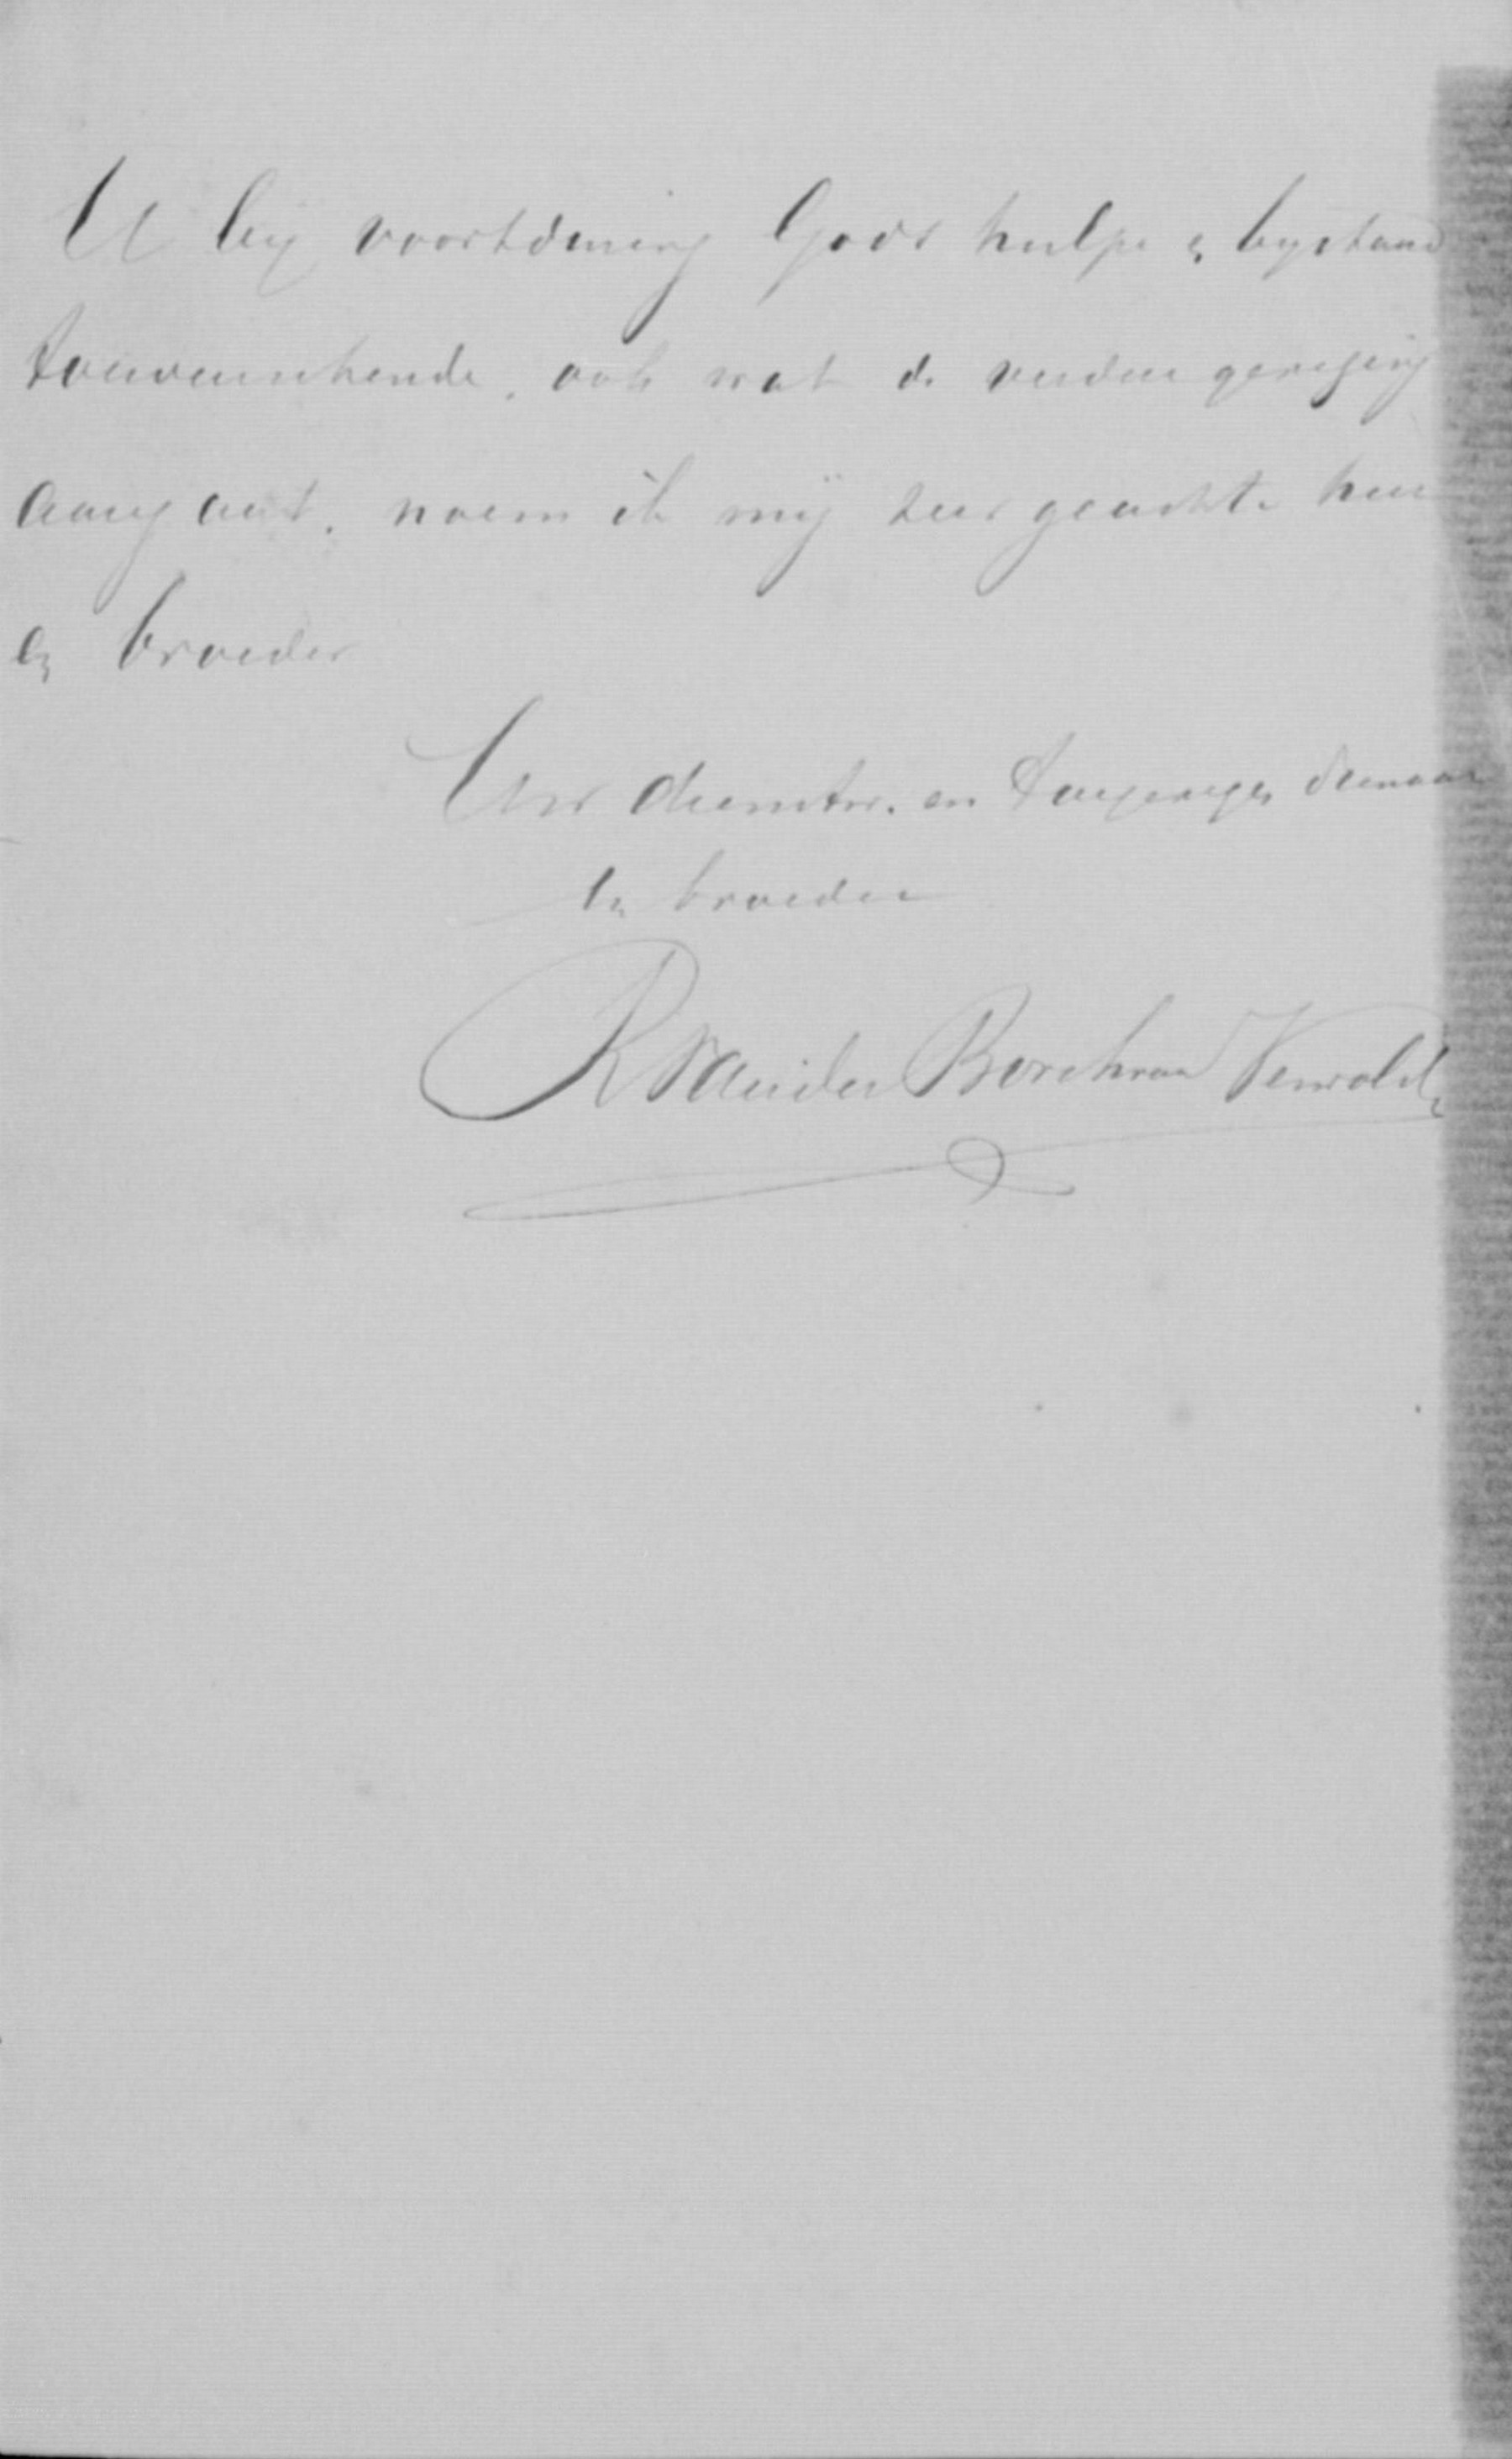 U bij voortduring Gods hulpe en bystand
toewenschende, ook wat de verdere
aangaat, noem ik mij zeer geachte heer
en broeder
Uw dienstw. en toegenegen dienaar
en broeder
R van der Borch van Verwolde